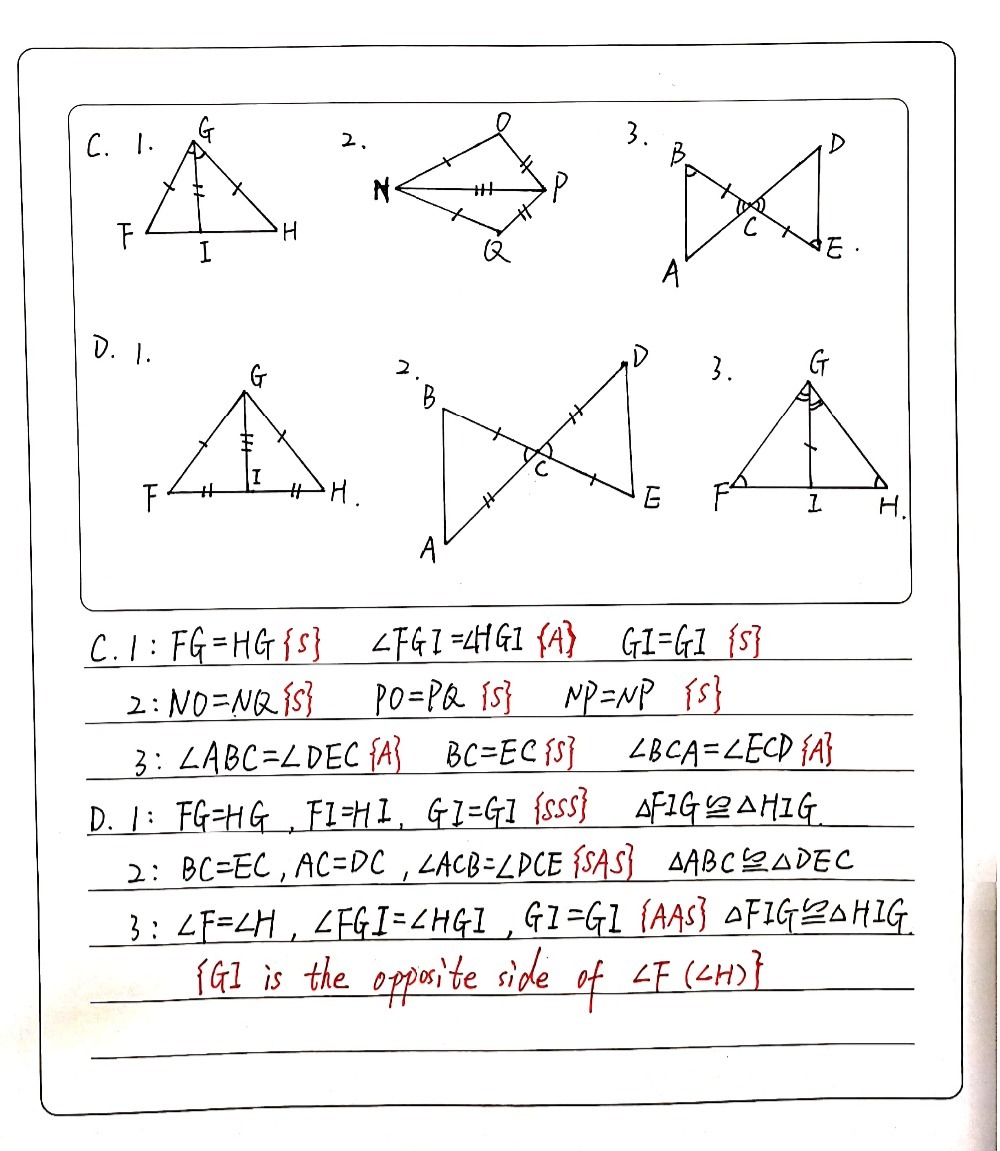 C. 1. G F I H
2. O N P Q
3. B D C A E .
D. 1. G F I H.
2. B D C A E
3. G F I H.
C. 1: FG=HG {S} ∠FGI=∠HGI {A} GI=GI {S}
2: NO=NQ {S} PO=PQ {S} NP=NP {S}
3: ∠ABC=∠DEC {A} BC=EC {S} ∠BCA=∠ECD {A}
D. 1: FG=HG , FI=HI, GI=GI {SSS} △FIG≌△HIG.
2: BC=EC , AC=DC , ∠ACB=∠DCE {SAS} △ABC≌△DEC
3: ∠F=∠H , ∠FGI=∠HGI , GI=GI {AAS} △FIG≌△HIG.
{GI is the opposite side of ∠F (∠H)}